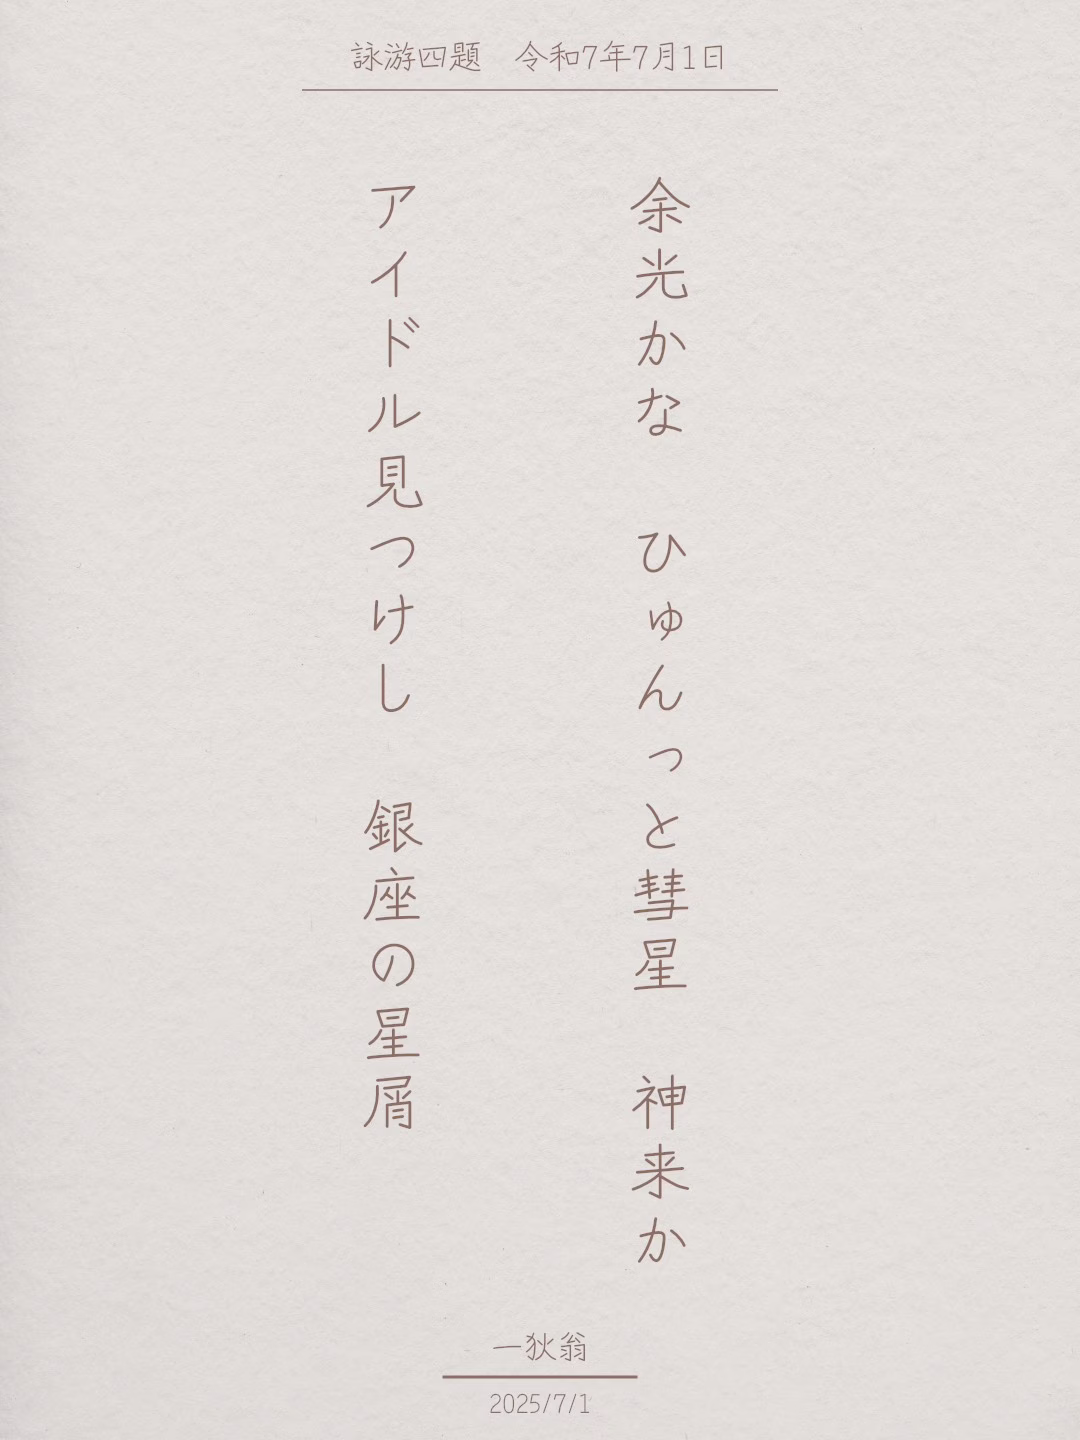 詠游四題　令和7年7月1日
余光かな　ひゅんっと彗星　神来か
アイドル見つけし　銀座の星屑
一狄翁
2025/7/1